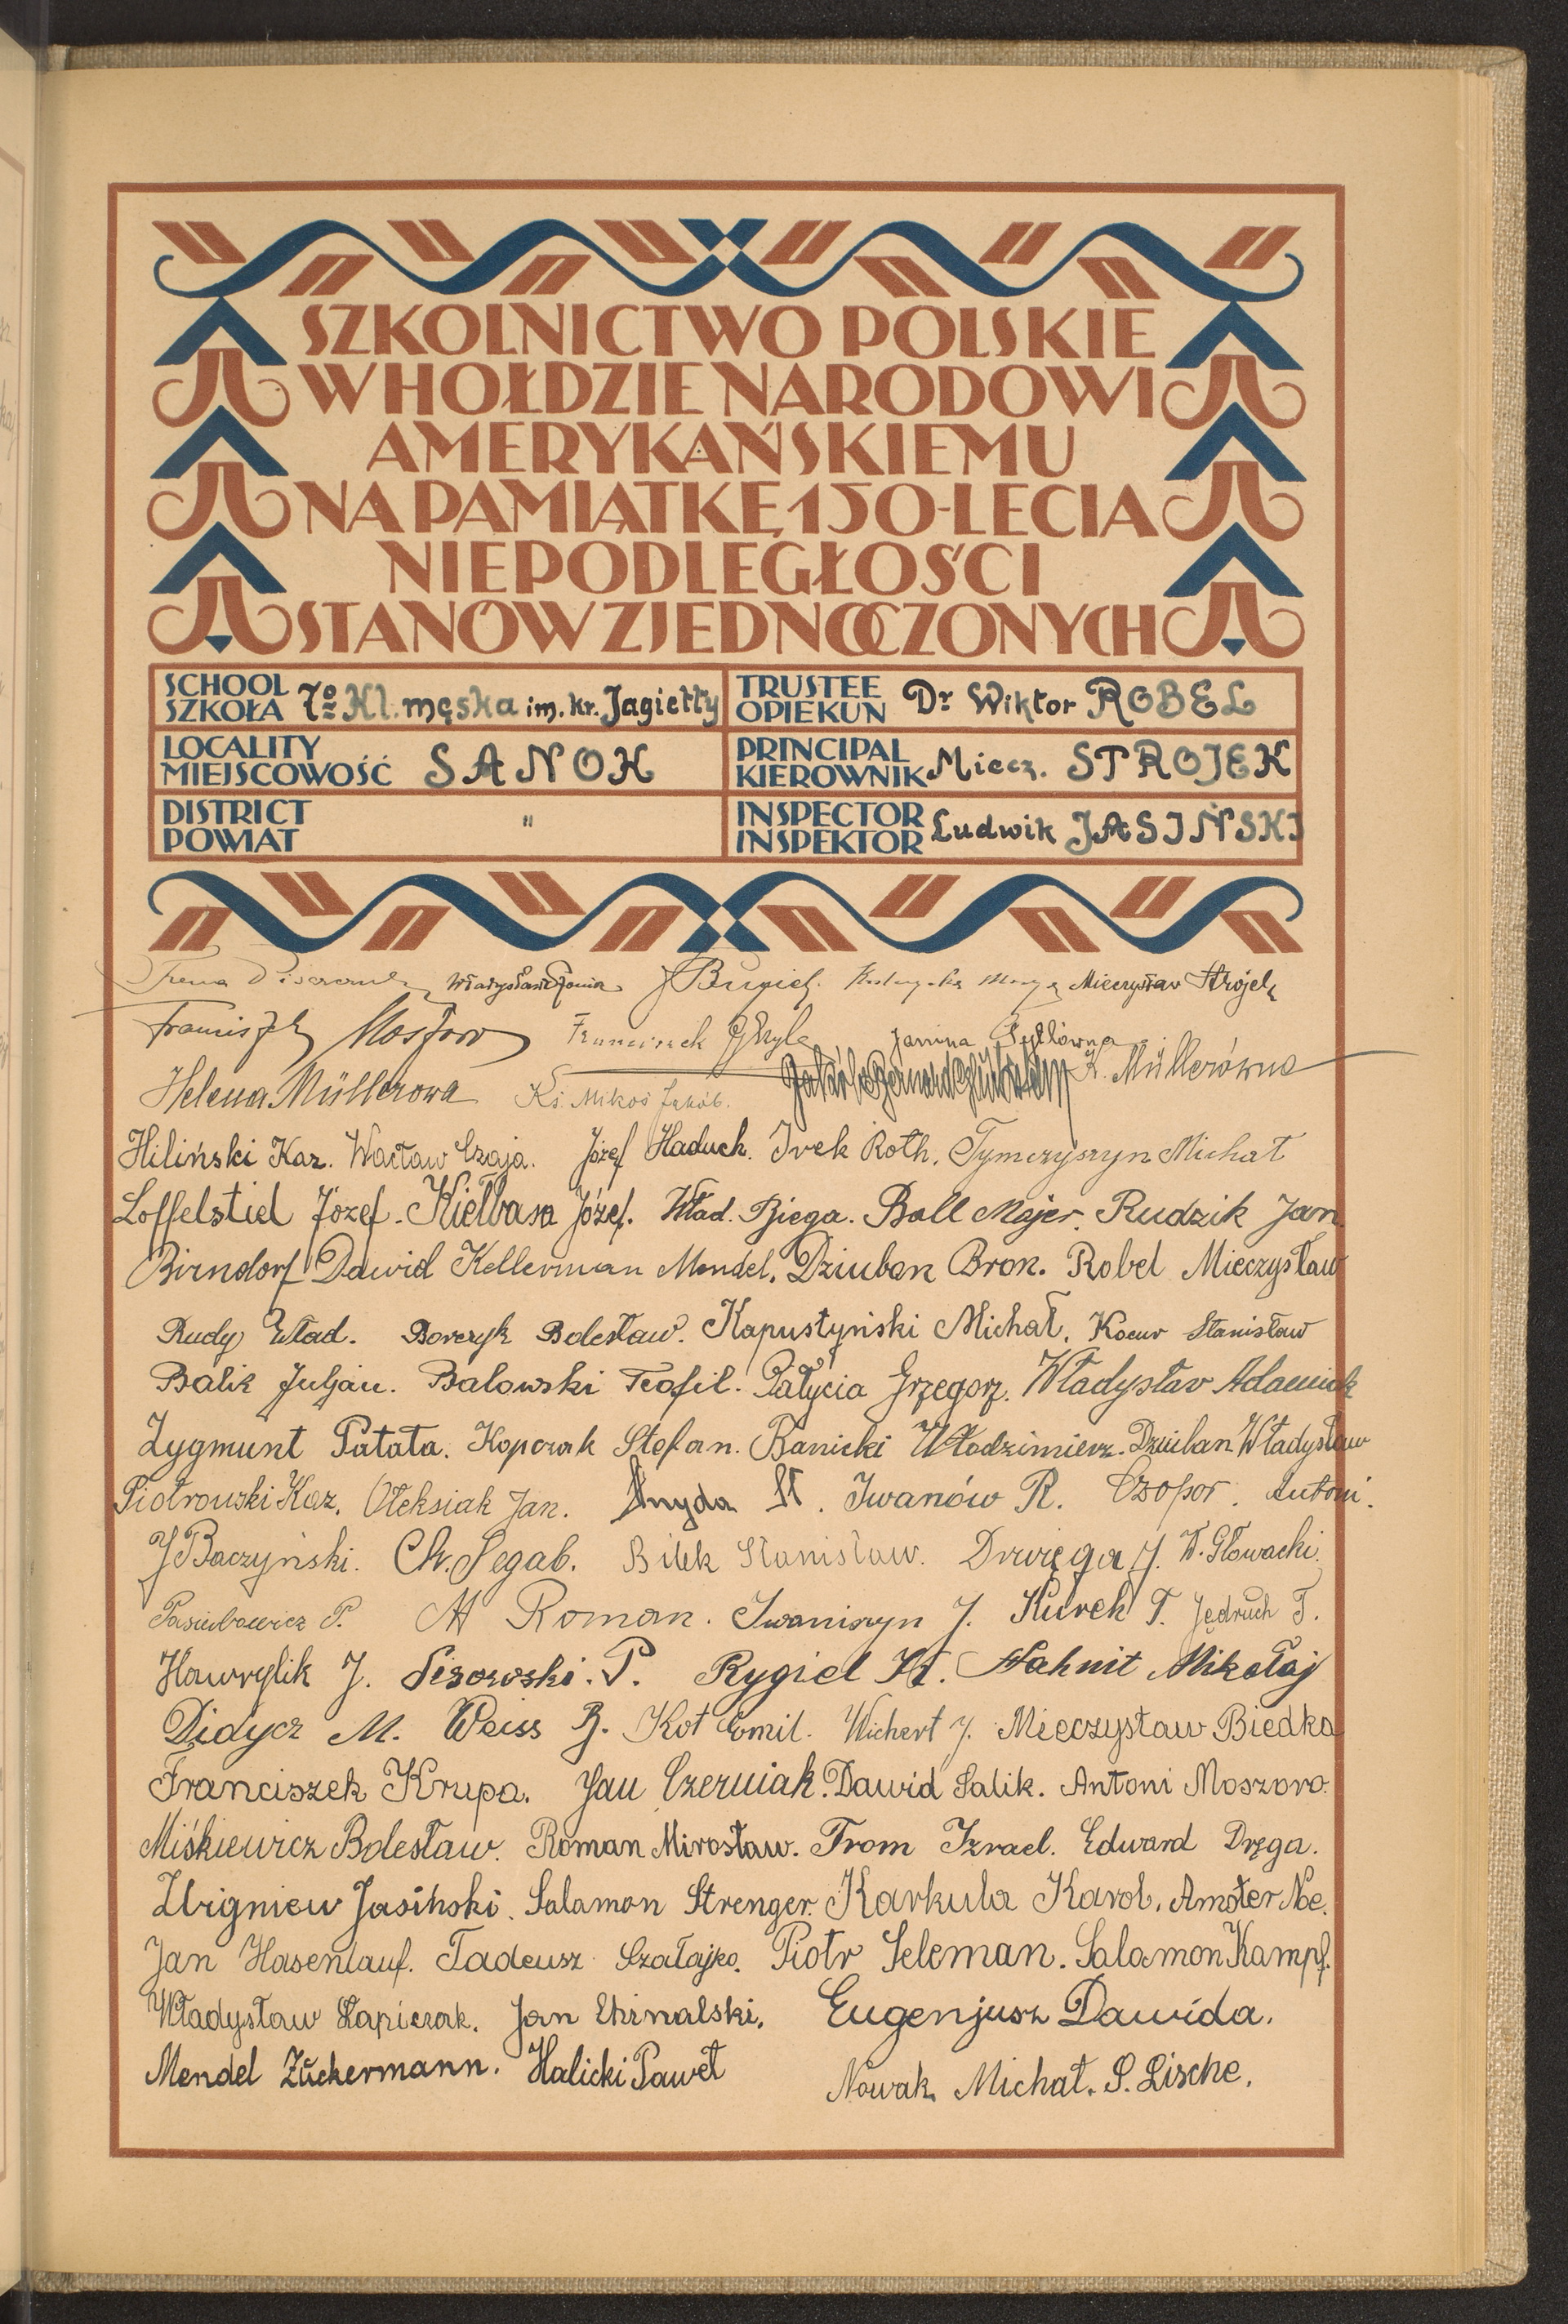 SZKOLNICTWO POLSKIE
W HOŁDZIE NARODOWI
AMERYKAŃSKIEMU
NA PAMIĄTKĘ 150-LECIA
NIEPODLEGŁOŚCI
STANÓW ZJEDNOCZONYCH
SCHOOL SZKOŁA 7o Kl. męska im. kr. Jagiełły TRUSTEE OPIEKUN Dr Wiktor ROBEL
LOCALITY MIEJSCOWOŚĆ SANOK PRINCIPAL KIEROWNIK Miecz. STROJEK
DISTRICT POWIAT " INSPECTOR INSPEKTOR Ludwik JASIŃSKI
Irena Władysława J Bugiel. Mieczysław Strojek
Franciszek Moszoro Franciszek Janina Sytłówna
Helena Müllerowa Ks. Mikoś Jakób. K. Müllerówna
Hiliński Kaz. Wacław Czaja. Józef Haduch. Ivek Roth. Tymczyszyn Michał
Loffelstiel Józef. Kiełbasa Józef. Wład. Biega. Ball Majer. Rudzik Jan
Birndorf Dawid Kellerman Mendel. Dziuban Bron. Robel Mieczysław
Rudy Wład. Borczyk Bolesław. Kapustyński Michał. Kocur Stanisław
Balik Juljan. Balowski Teofil. Pałycia Grzegorz. Władysław Adamiak
Zygmunt Patała. Kopczak Stefan. Banicki Włodzimierz. Dziuban Władysław
Piotrowski Kaz. Oleksiak Jan. St. Iwanów R. Czopor. Antoni.
J Baczyński. Ch. Segal. Bilek Stanisław. Drwięga J. W. Głowacki.
Pasiubowicz P. M Roman. Iwaniszyn J. Kurek T. Jędruch T.
Hawrylik J. Sisorski. P. Rygiel St. Hahnit Mikołaj
Didycz M. Weiss B. Kot Emil. Wichert J. Mieczysław Biedka
Franciszek Krupa. Jan Czerniak. Dawid Salik. Antoni Moszoro.
Miśkiewicz Bolesław. Roman Mirosław. From Izrael. Edward Dręga.
Zbigniew Jasiński. Salamon Strenger. Karkula Karol. Amster Noe.
Jan Hasenlauf. Tadeusz Czałajko. Piotr Seleman. Salamon Kampf.
Władysław Łapiczak. Jan Chrnalski. Eugenjusz Dawida.
Mendel Zuckermann. Halicki Paweł Nowak Michał. S. Lische.